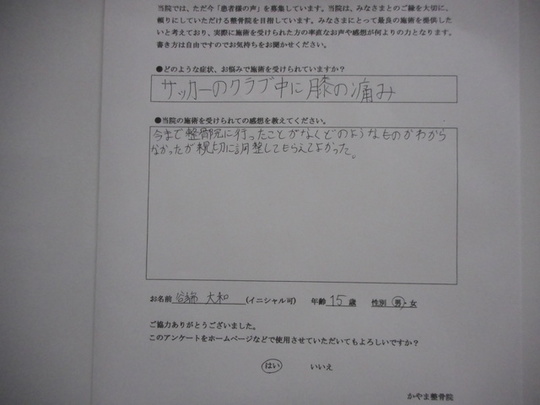 当院では、ただ今「患者様の声」を募集しています。当院は、みなさまとのご縁を大切に、
頼りにしていただける整骨院を目指しています。みなさまにとって最良の施術を提供した
いと考えており、実際に施術を受けられた方の率直なお声や感想が何よりの力となります。
書き方は自由ですのでお気持ちをお聞かせください。
●どのような症状、お悩みで施術を受けられていますか？
サッカーのクラブ中に膝の痛み
●当院の施術を受けられての感想を教えてください。
今まで整骨院に行ったことがなくどのようなものかわから
なかったが親切に調整してもらえてよかった。
お名前 大和 (イニシャル可) 年齢 15 歳 性別 男・女
ご協力ありがとうございました。
このアンケートをホームページなどで使用させていただいてもよろしいですか？
はい いいえ
かやま整骨院